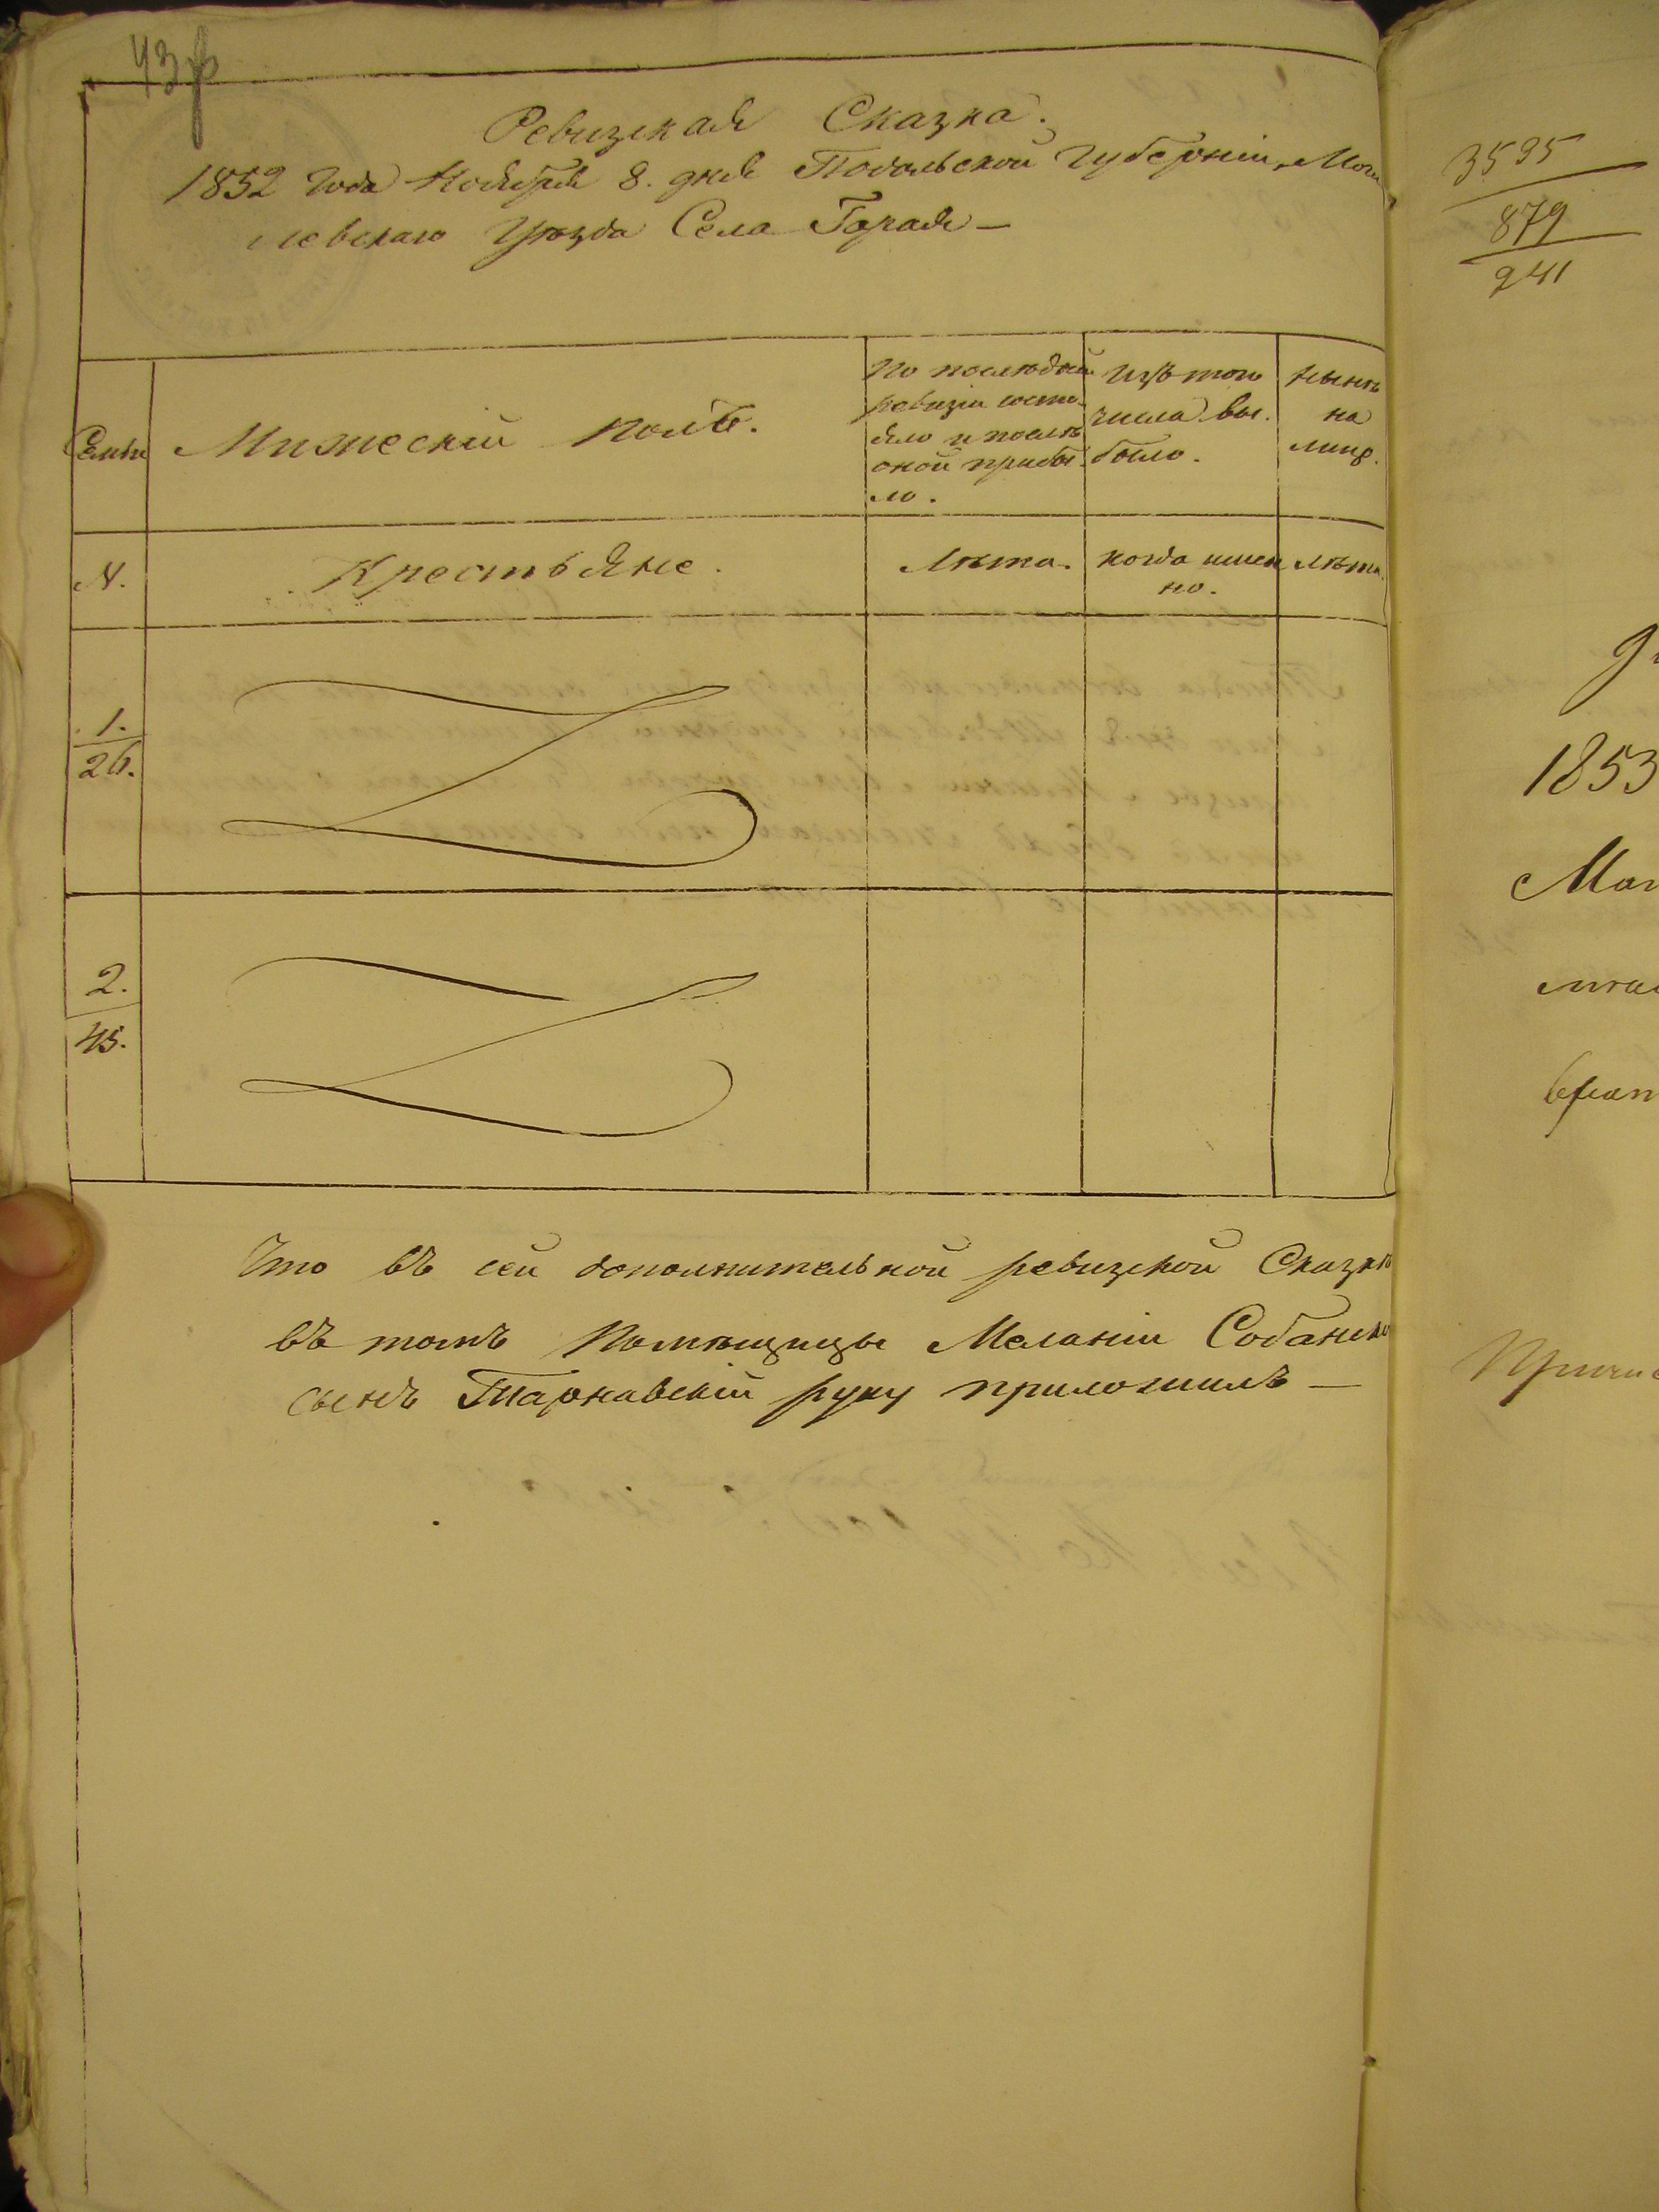 43
Ревизская Сказка.
1852 года Ноября 8. дня Подольской Губерніи, Моги
левскаго Уѣзда Села Гарая —
Семьи
Мужескій полъ.
По послѣдней
ревизіи состо-
яло и послѣ
оной прибы-
ло.
Изъ того
числа вы-
было.
Нынѣ
на
лицо.
N.
Крестьяне.
Лѣта.
когда имен
но.
Лѣта.
1.
26.
2.
45.
Что въ сей дополнительной ревизской Сказкѣ
въ томъ Помѣщицы Меланіи Собанско
сынъ Тарнавскій руку приложилъ —
3595
879
241
1853